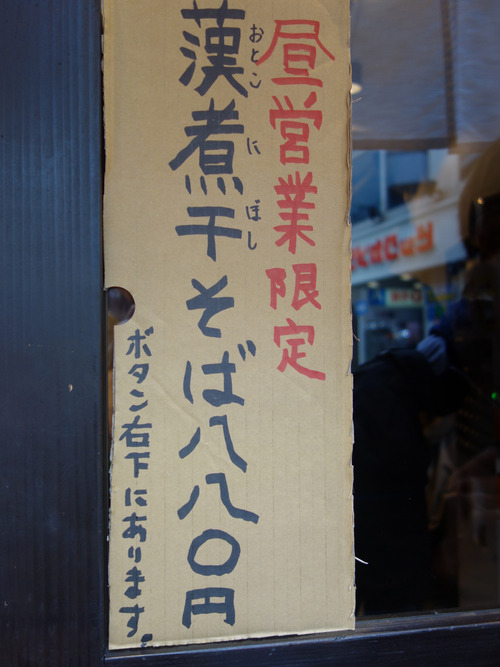 昼営業限定
おとこ に ぼし
漢煮干そば八八〇円
ボタン右下にあります。